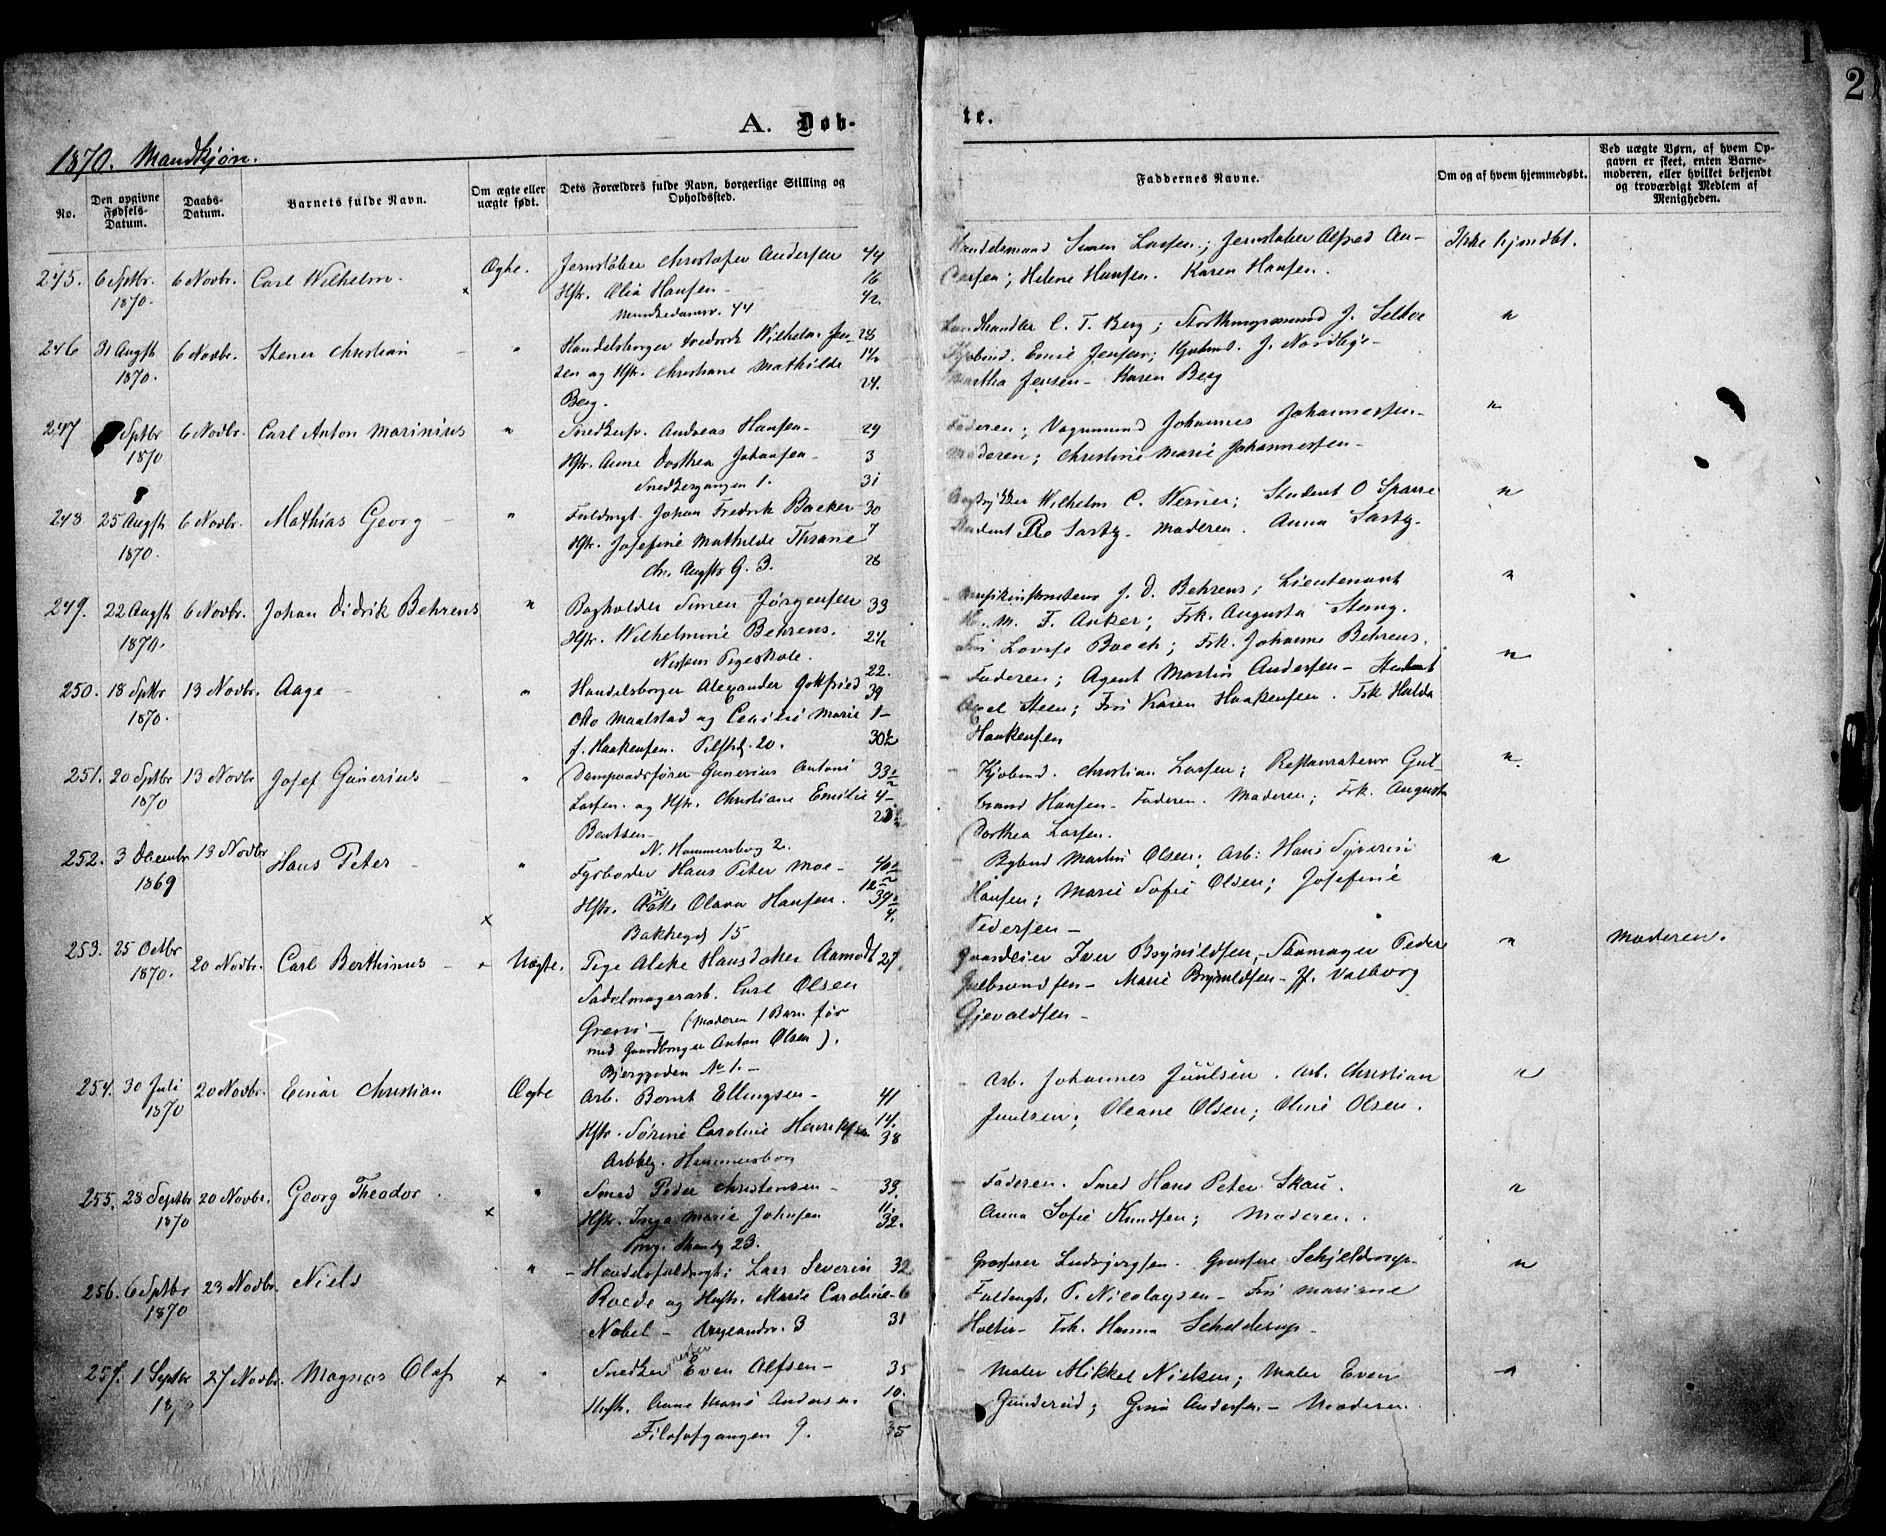 1
2
A. Døb-
te.
1870. Mandkjøn.
No.
Den opgivne Fødsels-Datum.
Daabs-Datum.
Barnets fulde Navn.
Om ægte eller uægte født.
Dets Forældres fulde Navn, borgerlige Stilling og Opholdssted.
Faddernes Navne.
Om og af hvem hjemmedøbt.
Ved uægte Børn, af hvem Opgaven er skeet, enten Barnemoderen, eller hvilket bekjendt og troværdigt Medlem af Menigheden.
245. 6 Septbr 1870. 6 Novbr. Carl Wilhelm. Ægte.
Jernstøber Christofer Andersen 44
Hstr. Olia Hansen - 16
Munkedamsv. 44 42.
Handelsmand Simen Larsen; Jernstøber Alfred An-
Larsen; Helene Hansen. Karen Hansen.
Ikke hjmdbt.
246 31 Augst 1870. 6 Novbr. Stener Christian - "
Handelsborger Fredrik Wilhelm Jen- 28
sen og Hstr. Christiane Mathilde 1½
Berg. 24.
Landhandler C. T. Berg; Storthingsmand J. Selboe
Kjøbmd. Emil Jensen; Kjøbmd. J. Nordbye -
Martha Jensen - Karen Berg
"
247 Septbr 1870 6 Novbr. Carl Anton Marinius "
Snedkersv. Andreas Hansen - 29
Hstr. Anne Dorthea Johansen - 3
Snedkergangen 1. 31
Faderen; Vognmand Johannes Johannessen -
Moderen; Christine Marie Johannessen -
"
248 25 Augst 1870. 6 Novbr. Mathias Georg - "
Fuldmgt. Johan Fredrik Backer 30
Hstr. Josefine Mathilde Thrane 7
Chr. Augsts G. 3. 28
Wilhelm C. Werner; Student O Sparre
Student Sarby. Moderen. Anna Sarby.
"
249. 22 Augst 1870. 6 Novbr. Johan Didrik Behrens "
Bogholder Simen Jörgensen 33
Hstr. Wilhelmine Behrens. 2½
Nissens Pigeskole. 22.
Musikinstruktør J. D. Behrens; Lieutenant
H. M. F. Anker; Frk. Augusta Stang.
Fru Lovise Boeck; Frk. Johanne Behrens.
"
250. 18 Septbr 1870. 13 Novbr. Aage - "
Handelsborger Alexander Gotfried 39
Otto Maalstad og Cecilie Marie 1 -
f. Haakensen. Pilstd. 20. 30½
Faderen; Agent Martin Andersen - Student
Axel Steen; Fru Karen Haakensen. Frk Hulda
Haakensen
"
251. 20 Septbr 1870 13 Novbr Josef Gunerius - "
Dampvadsfører Gunerius Antoni 33½
Larsen. og Hstr. Christiane Emilie 4 -
Bentsen -
N. Hammersborg 2.
Kjøbmd. Christian Larsen; Restauratør Gul-
brand Hansen - Faderen. Moderen; Frk. Augusta
Dorthea Larsen.
"
252. 3 Decembr 1869 13 Novbr Hans Peter - "
Fyrbøder Hans Peter Moe -
Hstr. Olava Hansen.
Bakkegd 15
Bybud Martin Olsen; Arb: Hans Syverin
Hansen; Marie Sofie Olsen; Josefine
Pedersen -
"
253. 25 Octbr 1870. 20 Novbr. Carl Berthinus - Uægte.
Pige Aleke Hansdatter Aamodt 27.
Sadelmagerarb. Carl Olsen
Greni - (Moderen 1 Barn før
med Gaardbruger Anton Olsen).
Bjerggaden No 1. -
Gaardeier Iver Brynildsen, Skomager Peder
Gulbrandsen - Marie Brynildsen - Jf. Valborg
Gjevaldsen -
" Moderen.
254. 30 Juli 1870 20 Novbr. Einar Christian Ægte
Arb. Bernt Ellingsen - 41
Hstr. Sørine Caroline Henriksen 14.
Arbbg. Hammersborg 38
Arb. Johannes Juulsen. Arb. Christian
Juulsen; Oleane Olsen; Oline Olsen.
"
255. 28 Septbr 1870 20 Novbr. Georg Theodor. "
Smed Peder Christensen - 33.
Hstr. Inga Marie Johnsen 11.
23. 32.
Faderen. Smed Hans Peter Skau.
Anna Sofie Knudsen; Moderen.
"
256. 6 Septbr 1870 23 Novbr. Niels "
Handelsfuldmgt: Lars Severin 32
Roede og Hustr. Marie Caroline - 6
Nobel - 3 31
Grosserer Ludvigsen. Grosserer Schjeldrup -
Fuldmgt. P. Nicolaysen - Fru Marisne
Holter - Frk. Hanna Schelderup -
"
257. 1 Septbr 187 27 Novbr. Magnus Olaf "
Snedkermester Even Alfsen - 35
Hustr. Anne Marie Andersen 10.
Filosofgangen 9. 35
Maler Mikkel Nielsen; Maler Even
Gunderud; Gina Andersen - Moderen.
"